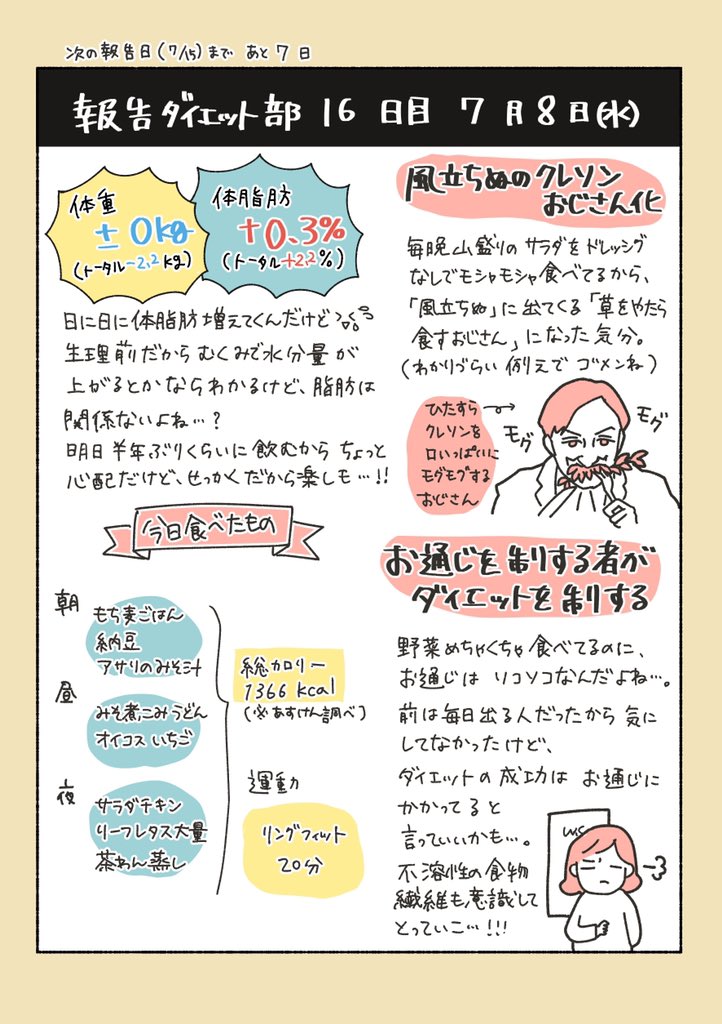 次の報告日(7/15)まで あと7日
報告ダイエット部 16 日目 7月8日(水)
体重
±0kg
(トータル-2.2kg)
体脂肪
+0.3%
(トータル+2.2%)
日に日に体脂肪増えてくんだけど
生理前だからむくみで水分量が
上がるとかならわかるけど、脂肪は
関係ないよね…?
明日半年ぶりくらいに飲むからちょっと
心配だけど、せっかくだから楽しも…!!
今日食べたもの
朝
もち麦ごはん
納豆
アサリのみそ汁
昼
みそ煮こみうどん
オイコスいちご
夜
サラダチキン
リーフレタス大量
茶わん蒸し
総カロリー
1366kcal
(※あすけん調べ)
運動
リングフィット
20分
風立ちぬのクレソン
おじさん化
毎晩山盛りのサラダをドレッシング
なしでモシャモシャ食べてるから、
「風立ちぬ」に出てくる「草をやたら
食すおじさん」になった気分。
(わかりづらい例えでゴメンね)
ひたすら
クレソンを
口いっぱいに
モグモグする
おじさん
モグ
モグ
お通じを制する者が
ダイエットを制する
野菜めちゃくちゃ食べてるのに、
お通じはソコソコなんだよね…。
前は毎日出る人だったから気に
してなかったけど、
ダイエットの成功はお通じに
かかってると
言っていいかも…。
不溶性の食物
繊維も意識して
とっていこ…!!!
W.C